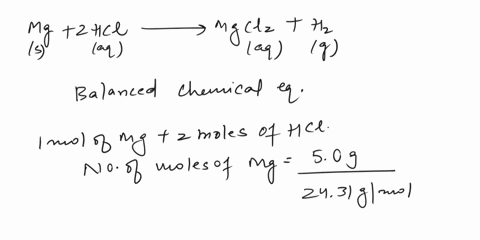 Mg + 2HCl ⟶ MgCl2 + H2
(s) (aq) (aq) (g)
Balanced chemical eq.
1 mol of Mg + 2 moles of HCl.
No. of moles of Mg = 5.0 g
24.31 g/mol